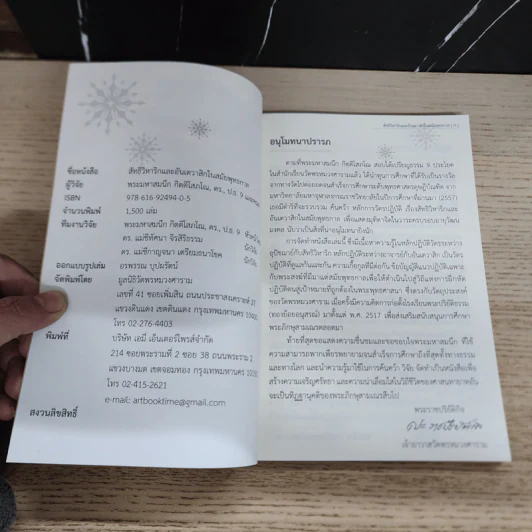 ชื่อหนังสือ สัทธิวิหาริกและอันเตวาสิกในสมัยพุทธกาล
ผู้วิจัย พระมหาสมนึก กิตติโสภโณ, ดร., ป.ธ. 9
ISBN 978 616 92494-0-5
จำนวนพิมพ์ 1,500 เล่ม
ทีมงานวิจัย พระมหาสมนึก กิตติโสภโณ, ดร., ป.ธ. 9
ดร. แม่ชีทัศนา จิรสิริธรรม นักวิจัย
ดร. แม่ชีกาญจนา เตรียมธนาโชค นักวิจัย
ออกแบบรูปเล่ม อรพรรณ บุปผรัตน์
จัดพิมพ์โดย มูลนิธิวัดพระหมวงคาราม
เลขที่ 41 ซอยเพิ่มสิน ถนนประชาสงเคราะห์ 37
แขวงดินแดง เขตดินแดง กรุงเทพมหานคร 10400
โทร 02-276-4403
พิมพ์ที่ บริษัท เอมี่ เอ็นเตอร์ไพรส์จำกัด
214 ซอยพระรามที่ 2 ซอย 38 ถนนพระราม 2
แขวงบางมด เขตจอมทอง กรุงเทพมหานคร
โทร 02-415-2621
e-mail: artbooktime@gmail.com
สงวนลิขสิทธิ์
อนุโมทนาปรารภ
ตามที่พระมหาสมนึก กิตติโสภโณ สอบได้เปรียญธรรม 9 ประโยค
ในสำนักเรียนวัดพระหมวงคาราม ได้นำทุนการศึกษาที่ได้รับเป็นรางวัล
จากทางวัดไปต่อยอดจนสำเร็จการศึกษาระดับพุทธศาสตรดุษฎีบัณฑิต จาก
มหาวิทยาลัยมหาจุฬาลงกรณราชวิทยาลัยในปีการศึกษาที่ผ่านมา (2557)
เธอมีดำริที่จะรวบรวม ค้นคว้า หลักการวัตรปฏิบัติ เรื่องสัทธิวิหาริกและ
อันเตวาสิกในสมัยพุทธกาล เพื่อแสดงมุทิตาจิตในวาระครบรอบอายุวัฒน
มงคล นับว่าเป็นสิ่งที่น่าอนุโมทนายิ่งนัก
การจัดทำหนังสือเล่มนี้ ซึ่งมีเนื้อหาความรู้ในหลักปฏิบัติวัตรระหว่าง
อุปัชฌาย์กับสัทธิวิหาริก หลักปฏิบัติวัตรระหว่างอาจารย์กับอันเตวาสิก เป็นวัตร
ปฏิบัติที่ดูแลกันและกัน ความเกื้อกูลที่มีต่อกัน ข้อบัญญัติแนวปฏิบัติเฉพาะ
กับพระสงฆ์ที่มีมาแต่สมัยพุทธกาลเพื่อให้ดำเนินไปสู่วิถีแห่งการฝึกหัด
ปฏิบัติตนสู่เป้าหมายที่ถูกต้องในพระพุทธศาสนา ซึ่งตรงกับวัตถุประสงค์
ของวัดพระหมวงคาราม เมื่อครั้งมีความคิดการก่อตั้งโรงเรียนพระปริยัติธรรม
(ทองย้อยอนุสรณ์) มาตั้งแต่ พ.ศ. 2517 เพื่อส่งเสริมสนับสนุนการศึกษา
พระภิกษุสามเณรตลอดมา
ท้ายที่สุดขอแสดงความชื่นชมและขอขอบใจพระมหาสมนึก ที่ใช้
ความสามารถพากเพียรพยายามจนสำเร็จการศึกษาถึงที่สุดทั้งทางธรรม
และทางโลก และนำความรู้มาใช้ในการค้นคว้า วิจัย จัดทำเป็นหนังสือเพื่อ
สร้างความเจริญศรัทธา และความน่าเลื่อมใสในวิถีชีวิตของศาสนทายาทอัน
จะเป็นทิฏฐานุคติของพระภิกษุสามเณรสืบไป
พระราชปริยัติกิจ
เจ้าอาวาสวัดพระหมวงคาราม